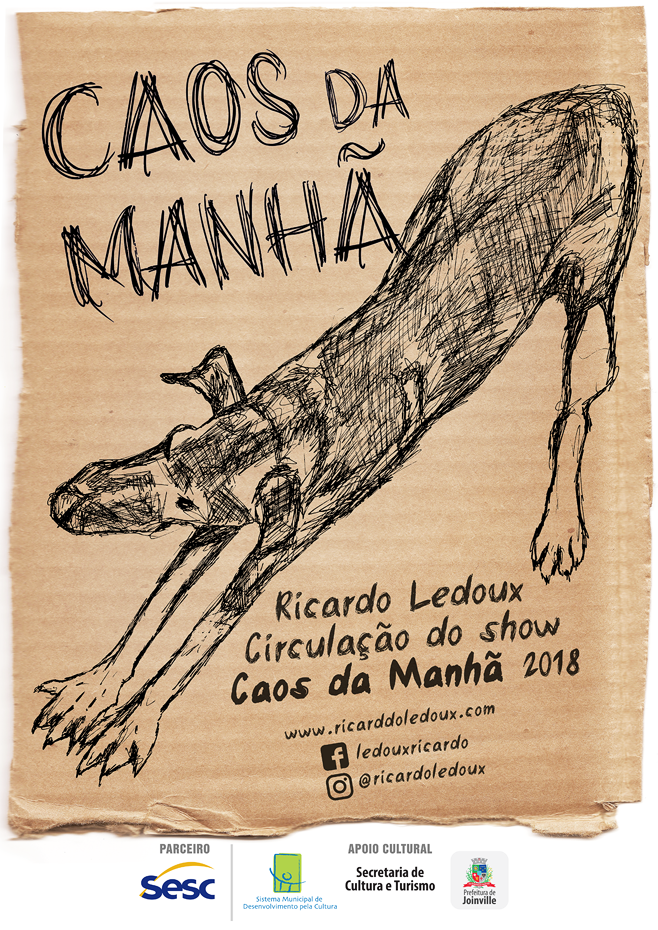 CAOS DA
MANHÃ
Ricardo Ledoux
Circulação do show
Caos da Manhã 2018
www.ricarddoledoux.com
ledouxricardo
@ricardoledoux
PARCEIRO
Sesc
Sistema Municipal de
Desenvolvimento pela Cultura
APOIO CULTURAL
Secretaria de
Cultura e Turismo
Prefeitura de
Joinville